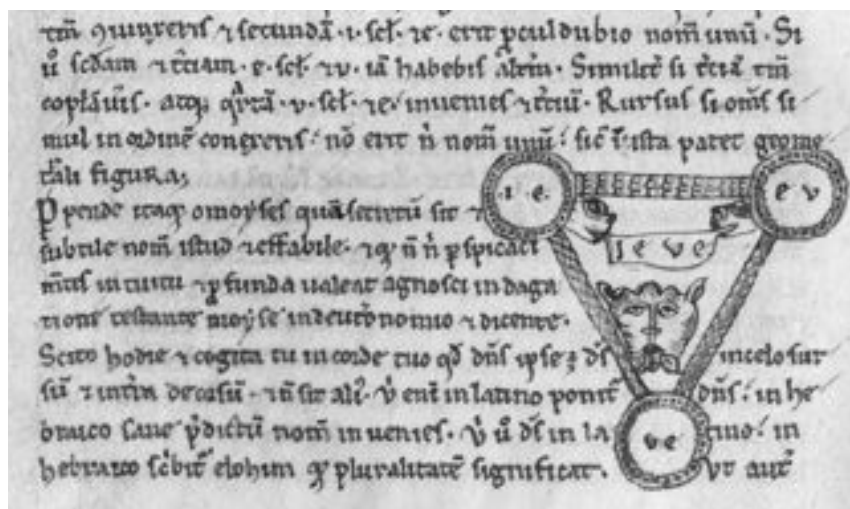 tm̄ ꝯiunxeris ⁊ secundā · i · scł · ⁊ e · erit ꝑculdubio nom̄ unū · Si
ů scđam ⁊ t̉ciam · e · scł · ⁊ v · iā habebis alt̉m · Similit̉ si t̉ciā tm̄
atqꝫ q̈rtā · v · scł · ⁊ e · inuenies ⁊ t̉ciū · Rursus si om̄s si
mul in ordinē · nō erit n̉ nom̄ unū · sic̄ ista patet geome
figura;
ꝑpende itaqꝫ o moyses quā sit ⁊
subtile nom̄ istud ⁊ effabile · ꝑspicaci
m̄tis intuitu ꝓfunda ualeat agnosci indaga
tione testante moyse in ⁊ dicente ·
Scito hodie ⁊ cogita tu in corde tuo qđ dn̄s ipse ē ds̄ in celo sur
sū ⁊ in t̉ra deorsū · ⁊ n̄ sit ali᷒ · v̉ eni in latino ponit̉ dn̄s · in he
braico sane p̉dictū nom̄ inuenies · v̉ ů ds̄ in la tino · in
hebraico sc̉bit̉ elohim qđ pluralitatē significat · vt aut̄
· i e ·
e v
I e v e
v e